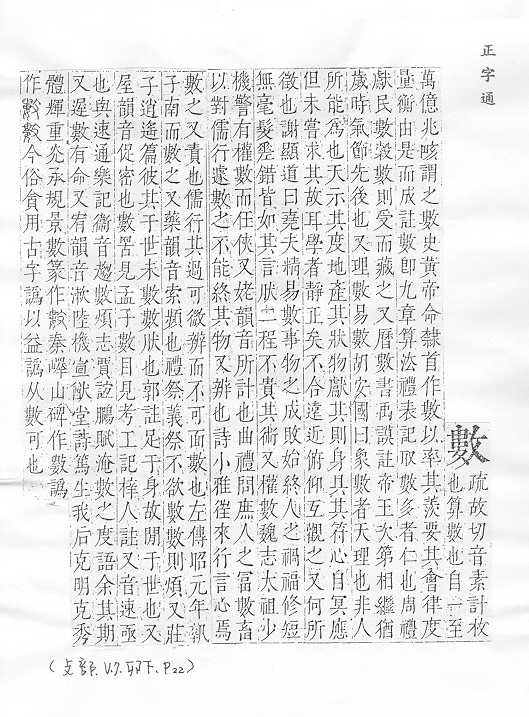 正字通
數
疏故切音素計枚
也算數也自一至
萬億兆咳謂之數史黃帝命隸首作數以率其羨要其會律度
量衡由是而成註數卽九章算法禮表記取數多者仁也周禮
獻民數穀數則受而藏之又曆數書禹謨註帝王次第相繼猶
歲時氣節先後也又理數易數胡安國曰象數者天理也非人
所能爲也天示其度地產其狀物獻其則身具其符心自冥應
但未嘗求其故耳學者靜正矣不合遠近俯仰互觀之又何所
徵也謝顯道曰堯夫精易數事物之成敗始終人之禍福修短
無毫髮錯皆如其言肰二程不貴其術又權數魏志太祖少
機警有權數而任俠又姥韻音所計也曲禮問庶人之富數畜
以對儒行遽數之不能終其物又辨也詩小雅徃來行言心焉
數之又責也儒行其過可微辨而不可面數也左傳昭元年執
子南而數之又藥韻音索頻也禮祭義祭不欲數數則煩又莊
子逍遙篇彼其于世未數數肰也郭註足于身故閒于世也又
屋韻音促密也數罟見孟子數目見考工記梓人註又音速亟
也與速通樂記衞音趨數煩志賈誼鵩賦淹數之度語余其期
又遲數有命又宥韻音漱陸機宣猷堂詩篤生我后克明克秀
體輝重炎承規景數篆作秦嶧山碑作數譌
作今俗食用古字譌以益譌从數可也
(攴部. V.7. 卯下. P22)